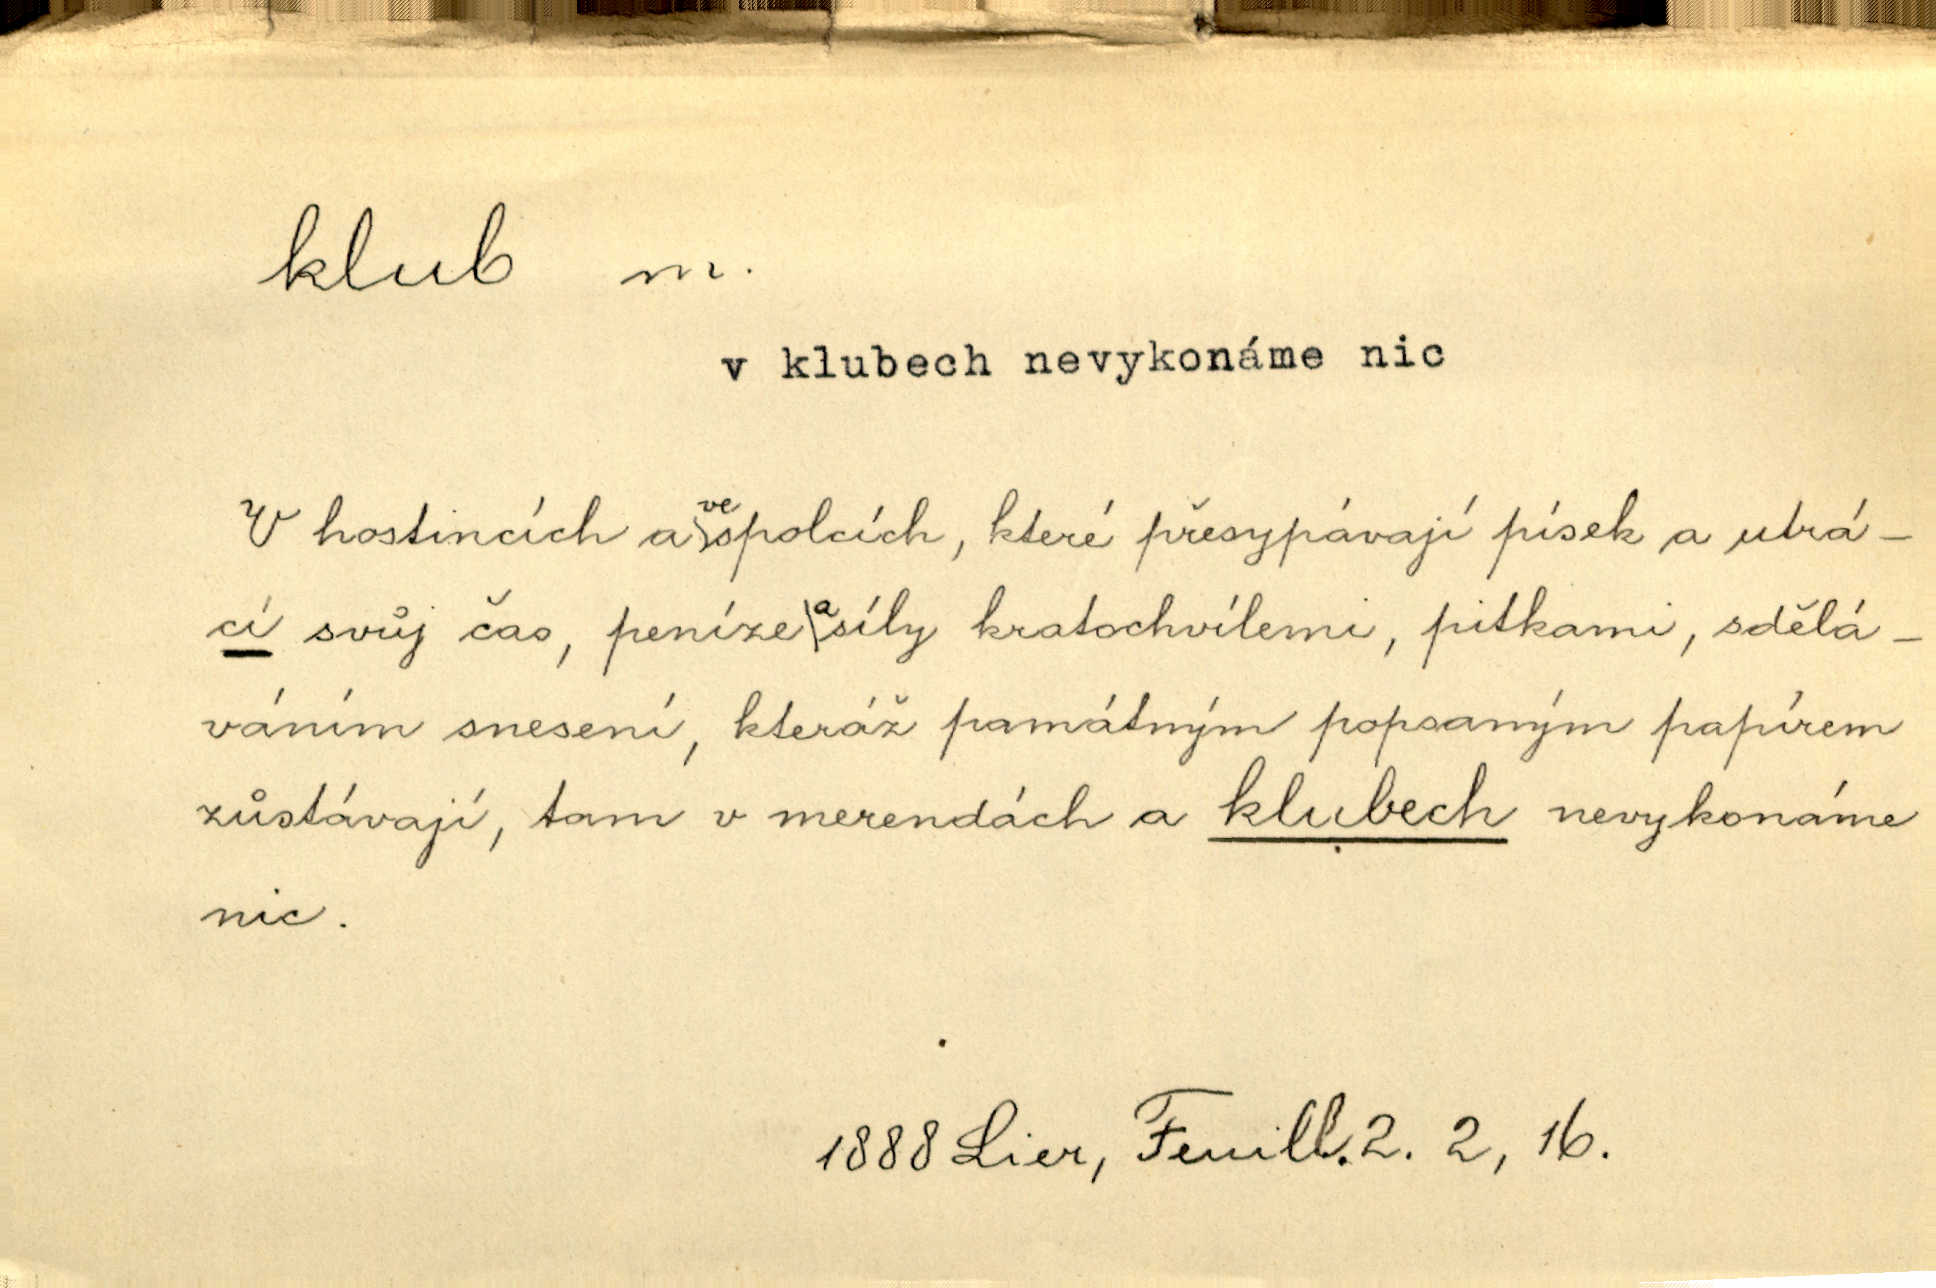 klub m.
v klubech nevykonáme nic
V hostincích a ve spolcích, které přesypávají písek a utrá-
cí svůj čas, peníze a síly kratochvílemi, pitkami, sdělá-
váním snesení, kteráž památným popsaným papírem
zůstávají, tam v merendách a klubech nevykonáme
nic.
1888 Lier, Feuill. 2. 2, 16.